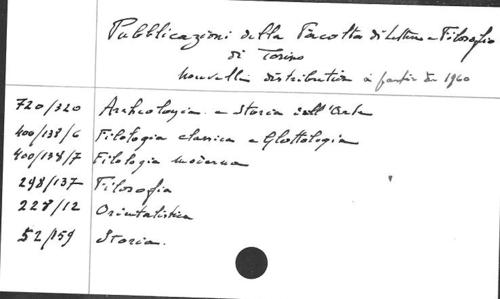 Pubblicazioni della Facolta di Lettere e Filosofia
di Torino
Nouvelle distribution à partir de 1960
720/320 Archeologia e Storia dell'Arte
400/138/6 Filologia classica e Glottologia
400/138/7 Filologia moderna
298/137 Filosofia
228/12 Orientalistica
52/159 Storia.